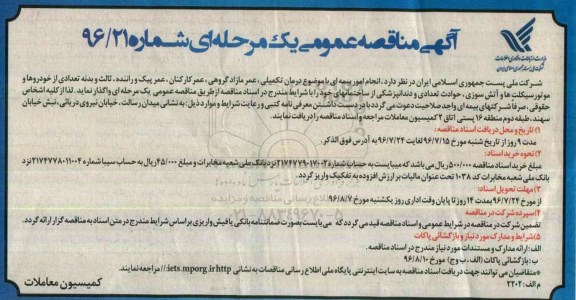 آگهی مناقصه عمومی یک مرحله‌ای شماره ۹۶/۲۱
شرکت ملی پست جمهوری اسلامی ایران در نظر دارد، انجام امور بیمه ای با موضوع درمان تکمیلی، عمر مازاد گروهی، عمر کارکنان، عمر پیک و راننده، ثالث و بدنه تعدادی از خودروها و
موتورسیکلت ها و آتش سوزی، حوادث تعدادی و دندانپزشکی از ساختمانهای خود را با شرایط مندرج در اسناد مناقصه از طریق مناقصه عمومی یک مرحله ای واگذار نماید. لذا از کلیه اشخاص
حقوقی، صرفاً شرکتهای بیمه ای واجد صلاحیت دعوت می گردد با در دست داشتن معرفی نامه کتبی و رعایت شرایط و موارد ذیل: به نشانی میدان رسالت، خیابان نیروی دریائی، نبش خیابان
سهند، طبقه دوم منطقه ۱۶ پستی اتاق ۲ کمیسیون معاملات مراجعه و اسناد مناقصه را دریافت نمایند.
۱) تاریخ و محل دریافت اسناد مناقصه:
مدت ۹ روز از تاریخ شنبه مورخ ۹۶/۷/۱۵ لغایت ۹۶/۷/۲۴ به آدرس فوق الذکر.
۲) نحوه خرید اسناد:
مبلغ خرید اسناد مناقصه ۵۰۰/۰۰۰ ریال می باشد که میبایست به حساب شماره ۲۱۷۴۷۷۹۰۱۷۰۰۲ نزد بانک ملی شعبه مخابرات و مبلغ ۴۵/۰۰۰ ریال به حساب سیبا شماره ۲۱۷۴۷۷۸۰۱۱۰۰۴ نزد
بانک ملی شعبه مخابرات کد ۱۰۳۸ تحت عنوان مالیات بر ارزش افزوده به تفکیک واریز گردد.
۳) مهلت تحویل اسناد:
از تاریخ ۹۶/۷/۲۴ بمدت ۱۴ روز تا پایان وقت اداری روز یکشنبه مورخ ۹۶/۸/۷
۴) سپرده شرکت در مناقصه
تضمین شرکت در مناقصه در شرایط عمومی و اسناد مناقصه قید می گردد که می بایست بصورت ضمانتنامه بانکی یا فیش واریزی بر اساس شرایط مندرج در متن اسناد به مناقصه گزار ارائه گردد.
۵) شرایط و مدارک مورد نیاز و بازگشائی پاکات
الف: ارائه مدارک و مستندات مورد نیاز مندرج در اسناد مناقصه.
ب: بازگشائی پاکات (الف، ب و ج) مورخ ۹۶/۸/۱۰
*متقاضیان می توانند جهت دریافت اسناد مناقصه به سایت اینترنتی پایگاه ملی اطلاع رسانی مناقصات به نشانی iets.mporg.ir http:// مراجعه نمایند.
م الف: ۲۲۰۲
کمیسیون معاملات